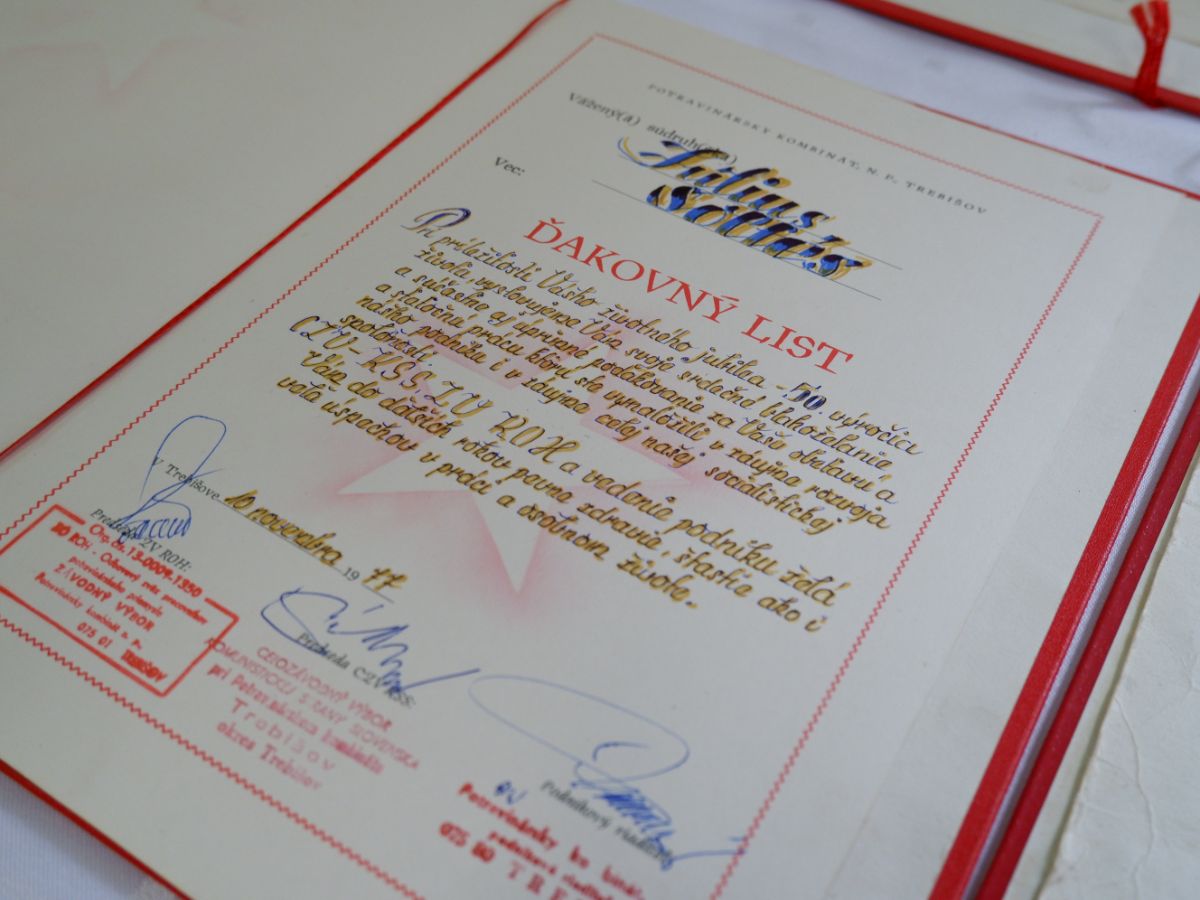 POTRAVINÁRSKY KOMBINÁT, N. P., TREBIŠOV
Vážený(á) súdruh(žka)
Július
Šoltés
Vec:
ĎAKOVNÝ LIST
Pri príležitosti Vášho životného jubilea - 50 výročia
života, vyslovujeme Vám svoje srdečné blahoželanie
a súčasne aj úprimné poďakovanie za Vašu obetavú a
a statočnú prácu, ktorú ste vynaložili v záujme rozvoja
nášho podniku i v záujme celej našej socialistickej
spoločnosti.
CZV-KSS, ZV ROH a vedenie podniku želá
Vám do ďalších rokov pevné zdravie, šťastie ako i
veľa úspechov v práci a osobnom živote.
V Trebišove 10 novembra 1977
Predseda ZV ROH:
Org. čís. 13-0009.1350
RO ROH - Odborový zväz pracovníkov
potravinárskeho priemyslu
ZÁVODNÝ VÝBOR
Potravinársky kombinát n. p.
075 01 TREBIŠOV
Predseda CZV KSS:
CELOZÁVODNÝ VÝBOR
KOMUNISTICKEJ STRANY SLOVENSKA
pri Potravinárskom kombináte
Trebišov
okres Trebišov
Podnikový riaditeľ
Potravinársky kombinát
podnikové riaditeľstvo
075 80 TRE